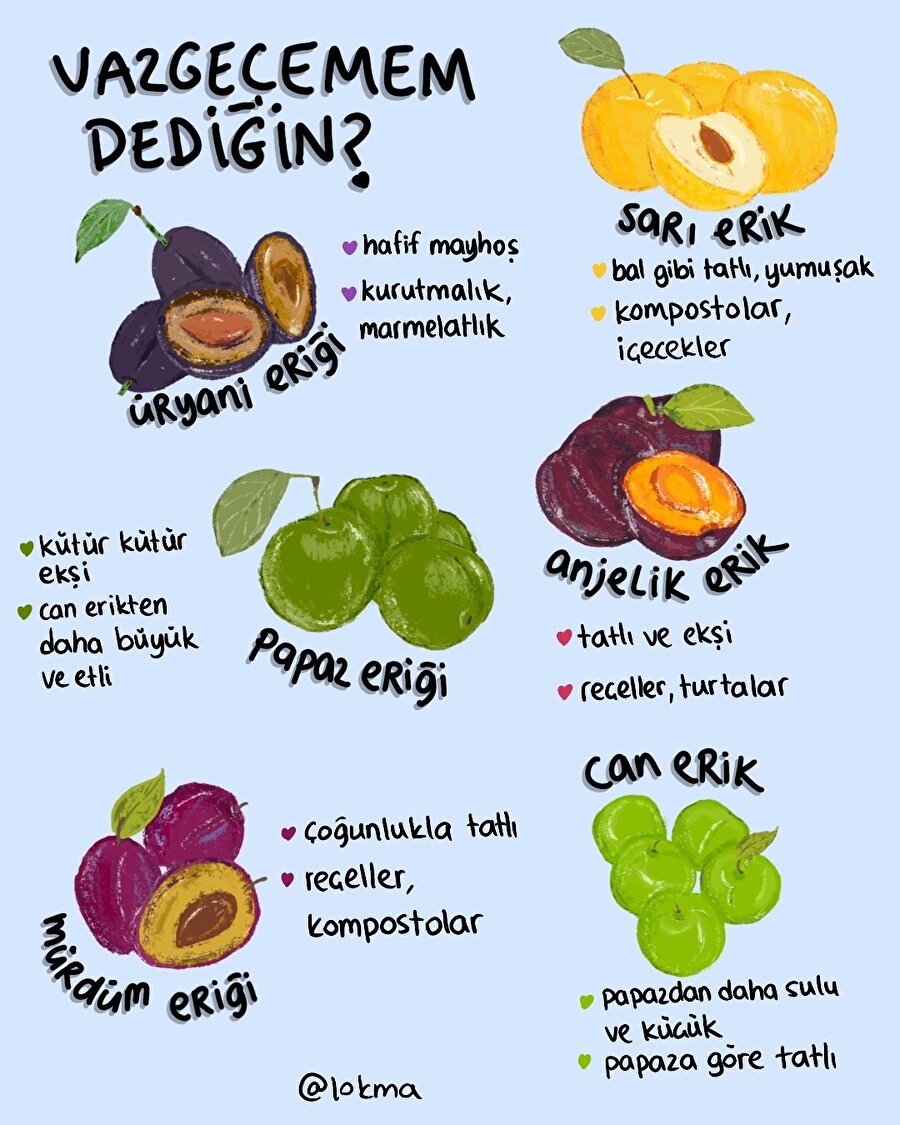 VAZGEÇEMEM
DEDİĞİN?
sarı erik
bal gibi tatlı, yumuşak
kompostolar,
içecekler
üryani eriği
hafif mayhoş
kurutmalık,
marmelatlık
anjelik erik
tatlı ve ekşi
reçeller, turtalar
papaz eriği
kütür kütür
ekşi
can erikten
daha büyük
ve etli
can erik
papazdan daha sulu
ve küçük
papaza göre tatlı
mürdüm eriği
çoğunlukla tatlı
reçeller,
kompostolar
@lokma